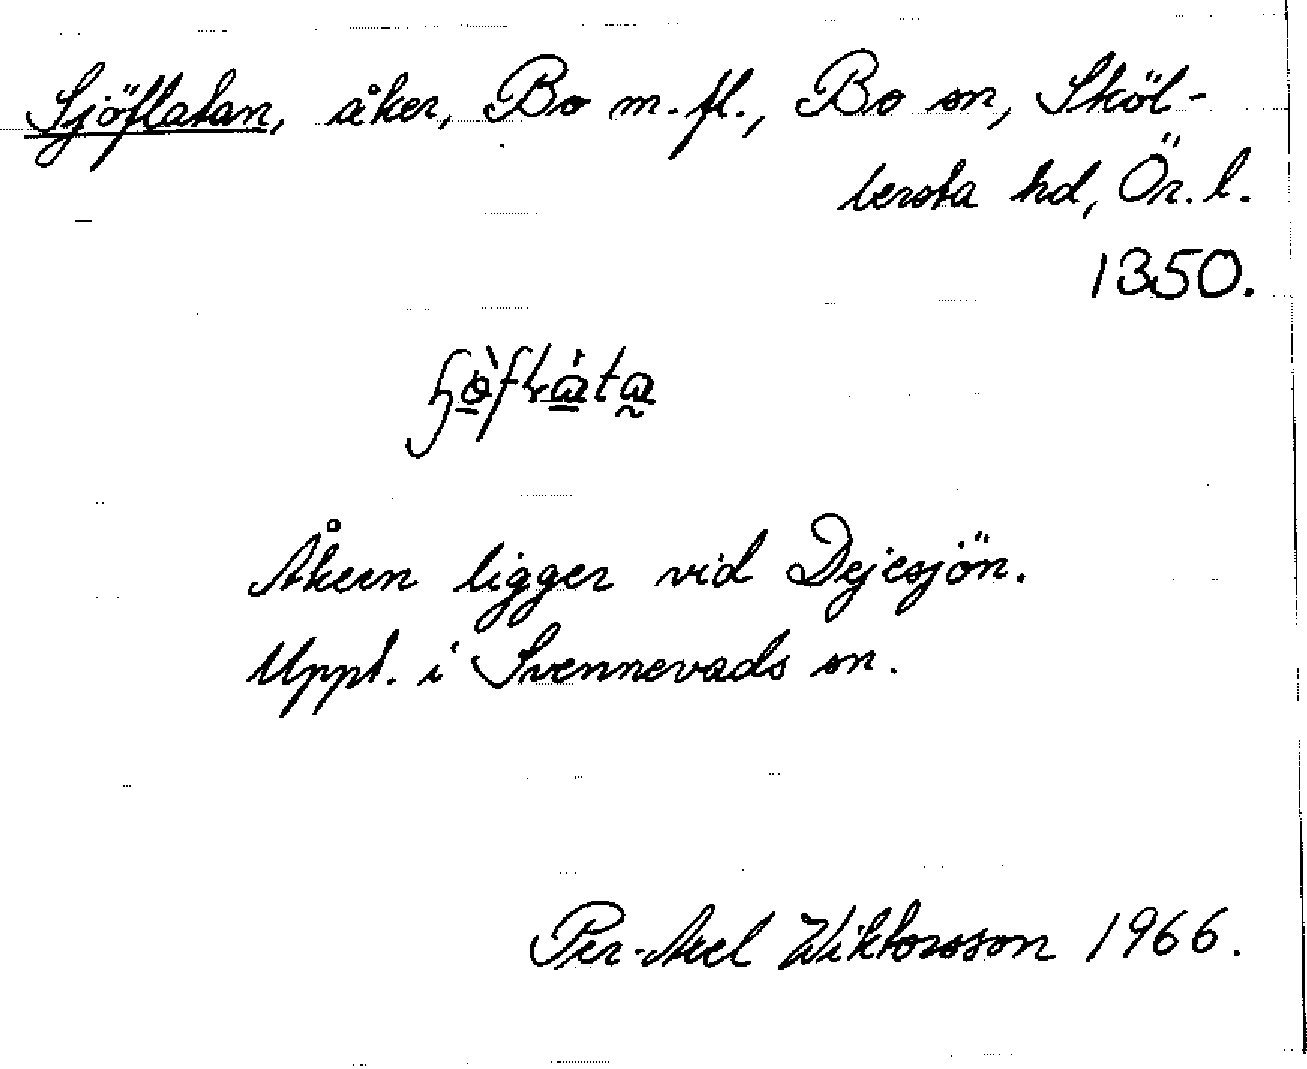 Sjöflatan, åker, Bo m.fl., Bo sn, Sköl-
lersta hd, Ör. l.
1350.
Åkern ligger vid Dejesjön.
Uppt. i Svennevads sn.
Per-Axel Wiktorsson 1966.